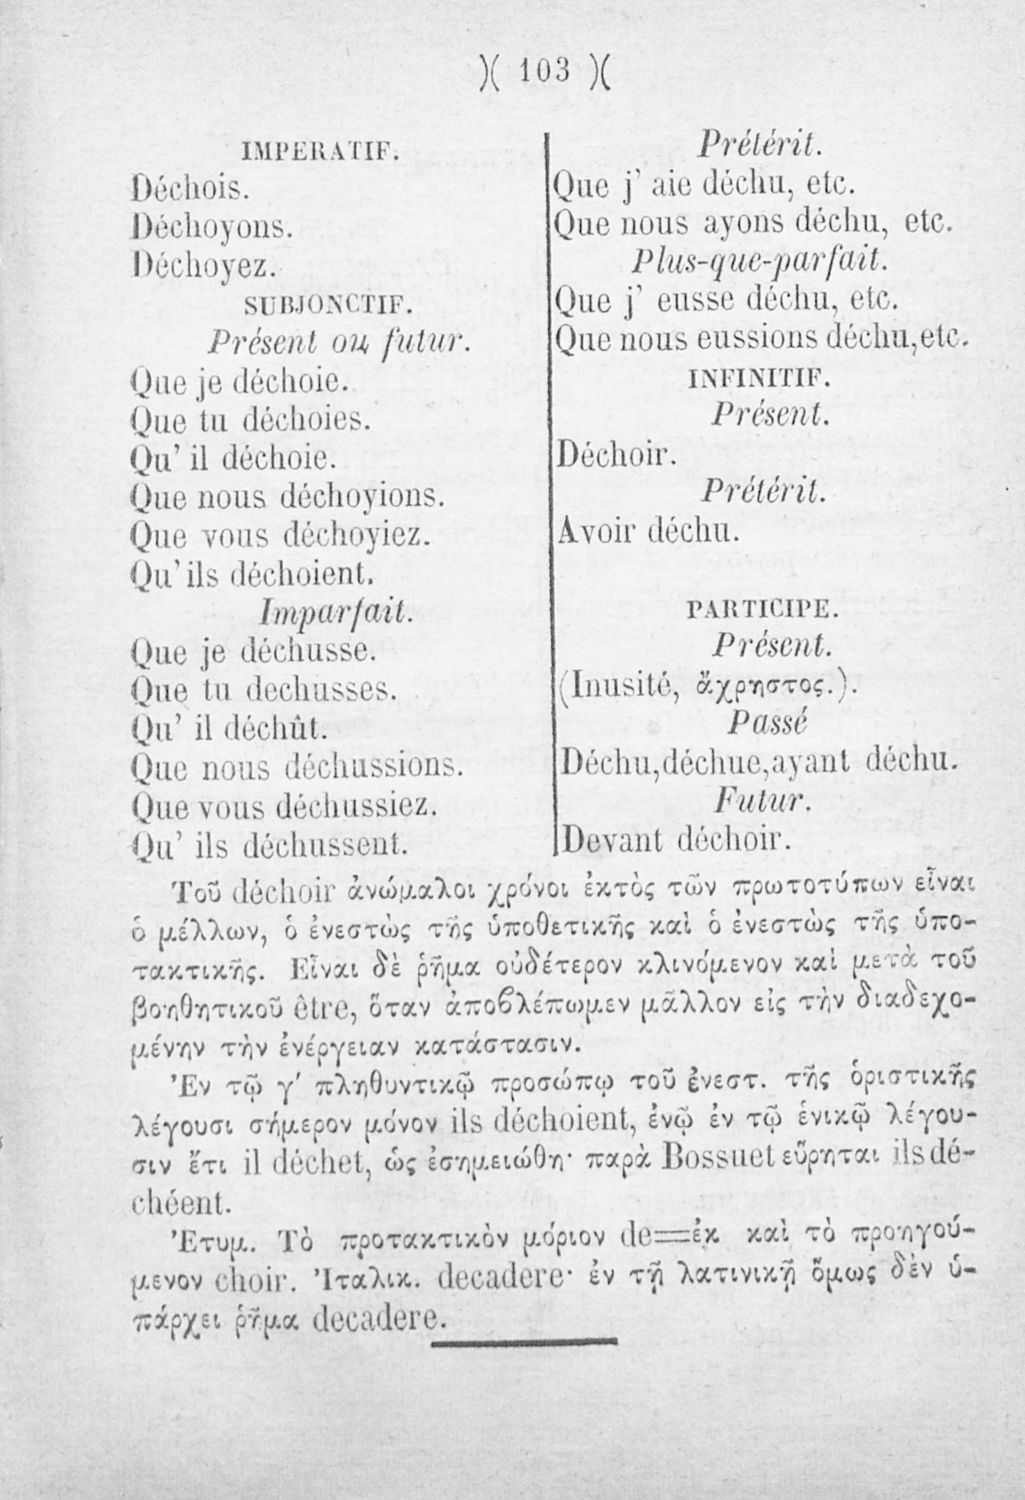 )( 103 )(
IMPERATIF.
Déchois.
Déchoyons.
Déchoyez.
SUBJONCTIF.
Présent ou futur.
Que je déchoie.
Que tu déchoies.
Qu' il déchoie.
Que nous déchoyions.
Que vous déchoyiez.
Qu' ils déchoient.
Imparfait.
Que je déchusse.
Que tu dechusses.
Qu' il déchût.
Que nous déchussions.
Que vous déchussiez.
Qu' ils déchussent.
Prétérit.
Que j' aie déchu, etc.
Que nous ayons déchu, etc.
Plus-que-parfait.
Que j' eusse déchu, etc.
Que nous eussions déchu,etc.
INFINITIF.
Présent.
Déchoir.
Prétérit.
Avoir déchu.
PARTICIPE.
Présent.
(Inusité, ἄχρηστος.).
Passé
Déchu,déchue,ayant déchu.
Futur.
Devant déchoir.
Τοῦ déchoir ἀνώμαλοι χρόνοι ἐκτὸς τῶν πρωτοτύπων εἶναι
ὁ μέλλων, ὁ ἐνεστὼς τῆς ὑποθετικῆς καὶ ὁ ἐνεστὼς τῆς ὑπο-
τακτικῆς. Εἶναι δὲ ῥῆμα οὐδέτερον κλινόμενον καὶ μετὰ τοῦ
βοηθητικοῦ être, ὅταν ἀποβλέπωμεν μᾶλλον εἰς τὴν διαδεχο-
μένην τὴν ἐνέργειαν κατάστασιν.
Ἐν τῷ γ′ πληθυντικῷ προσώπῳ τοῦ ἐνεστ. τῆς ὁριστικῆς
λέγουσι σήμερον μόνον ils déchoient, ἐνῷ ἐν τῷ ἑνικῷ λέγου-
σιν ἔτι il déchet, ὡς ἐσημειώθη· παρὰ Bossuet εὕρηται ils dé-
chéent.
Ἐτυμ. Τὸ προτακτικὸν μόριον de=ἐκ καὶ τὸ προηγού-
μενον choir. Ἰταλικ. decadere· ἐν τῇ λατινικῇ ὅμως δὲν ὑ-
πάρχει ῥῆμα decadere.